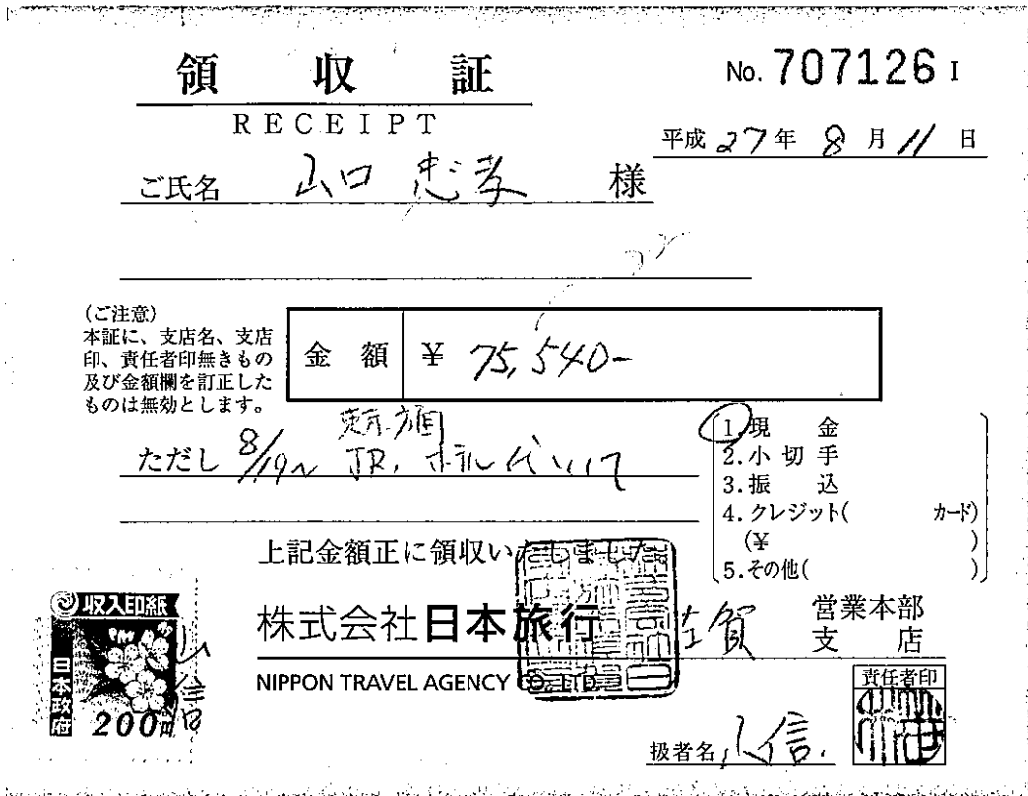 領収証
No. 707126 I
RECEIPT
平成 27年 8月 11日
ご氏名 山口 忠孝 様
(ご注意)
本証に、支店名、支店
印、責任者印無きもの
及び金額欄を訂正した
ものは無効とします。
金額 ¥ 75,540-
東京方面
ただし 8/19~ JR, ホテル代
1.現金
2.小切手
3.振込
4.クレジット( カード)
(¥ )
5.その他( )
上記金額正に領収いたしました
収入印紙
日本政府
200円
株式会社日本旅行
佐賀
営業本部
支店
NIPPON TRAVEL AGENCY CO.,LTD.
責任者印
扱者名